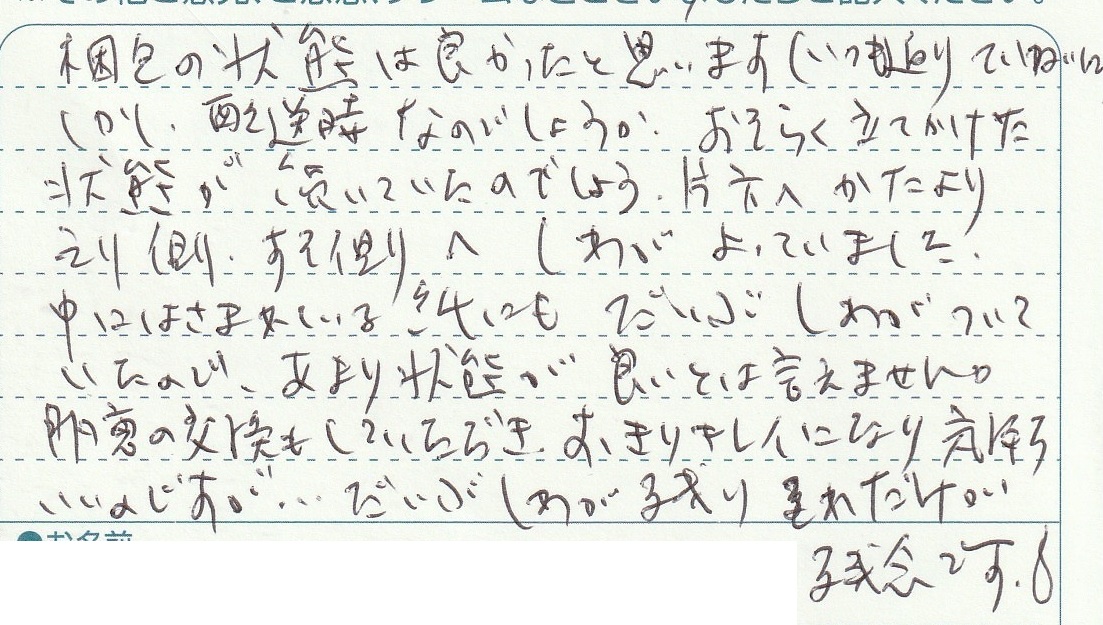 梱包の状態は良かったと思います(いつも通りていねいに
しかし、配送時なのでしょうか、おそらく立てかけた
状態が続いていたのでしょう。片方へかたより
えり側、すそ側へしわがよっていました。
中にはさまれている紙にもだいぶしわがついて
いたので、あまり状態が良いとは言えません。
の交換もしていただき、すっきりキレイになり気持ち
いいのですが… だいぶしわが残り それだけが
●お名前
残念です。